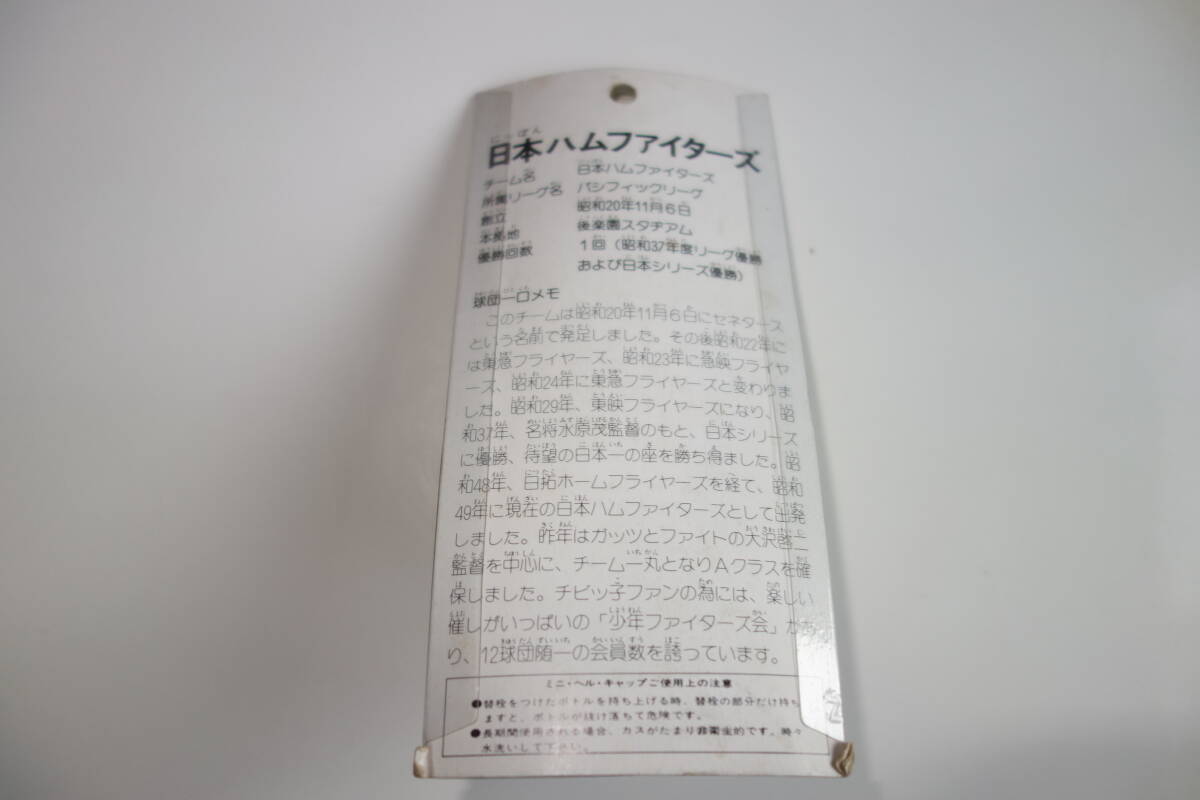 にっぽん
日本ハムファイターズ
チーム名 日本ハムファイターズ
所属リーグ名 パシフィックリーグ
創立 昭和20年11月6日
本拠地 後楽園スタヂアム
優勝回数 1回(昭和37年度リーグ優勝
および日本シリーズ優勝)
球団一口メモ
このチームは昭和20年11月6日にセネタース
という名前で発足しました。その後昭和22年に
は東急フライヤーズ、昭和23年に急映フライヤ
ーズ、昭和24年に東急フライヤーズと変わりま
した。昭和29年、東映フライヤーズになり、昭
和37年、名将水原茂監督のもと、日本シリーズ
に優勝、待望の日本一の座を勝ち得ました。昭
和48年、日拓ホームフライヤーズを経て、昭和
49年に現在の日本ハムファイターズとして出発
しました。昨年はガッツとファイトの大沢啓二
監督を中心に、チーム一丸となりAクラスを確
保しました。チビッ子ファンの為には、楽しい
催しがいっぱいの「少年ファイターズ会」があ
り、12球団随一の会員数を誇っています。
ミニ・ヘル・キャップご使用上の注意
●替栓をつけたボトルを持ち上げる時、替栓の部分だけ持ち
ますと、ボトルが抜け落ちて危険です。
●長期間使用される場合、カスがたまり非衛生的です。時々
水洗いして下さい。